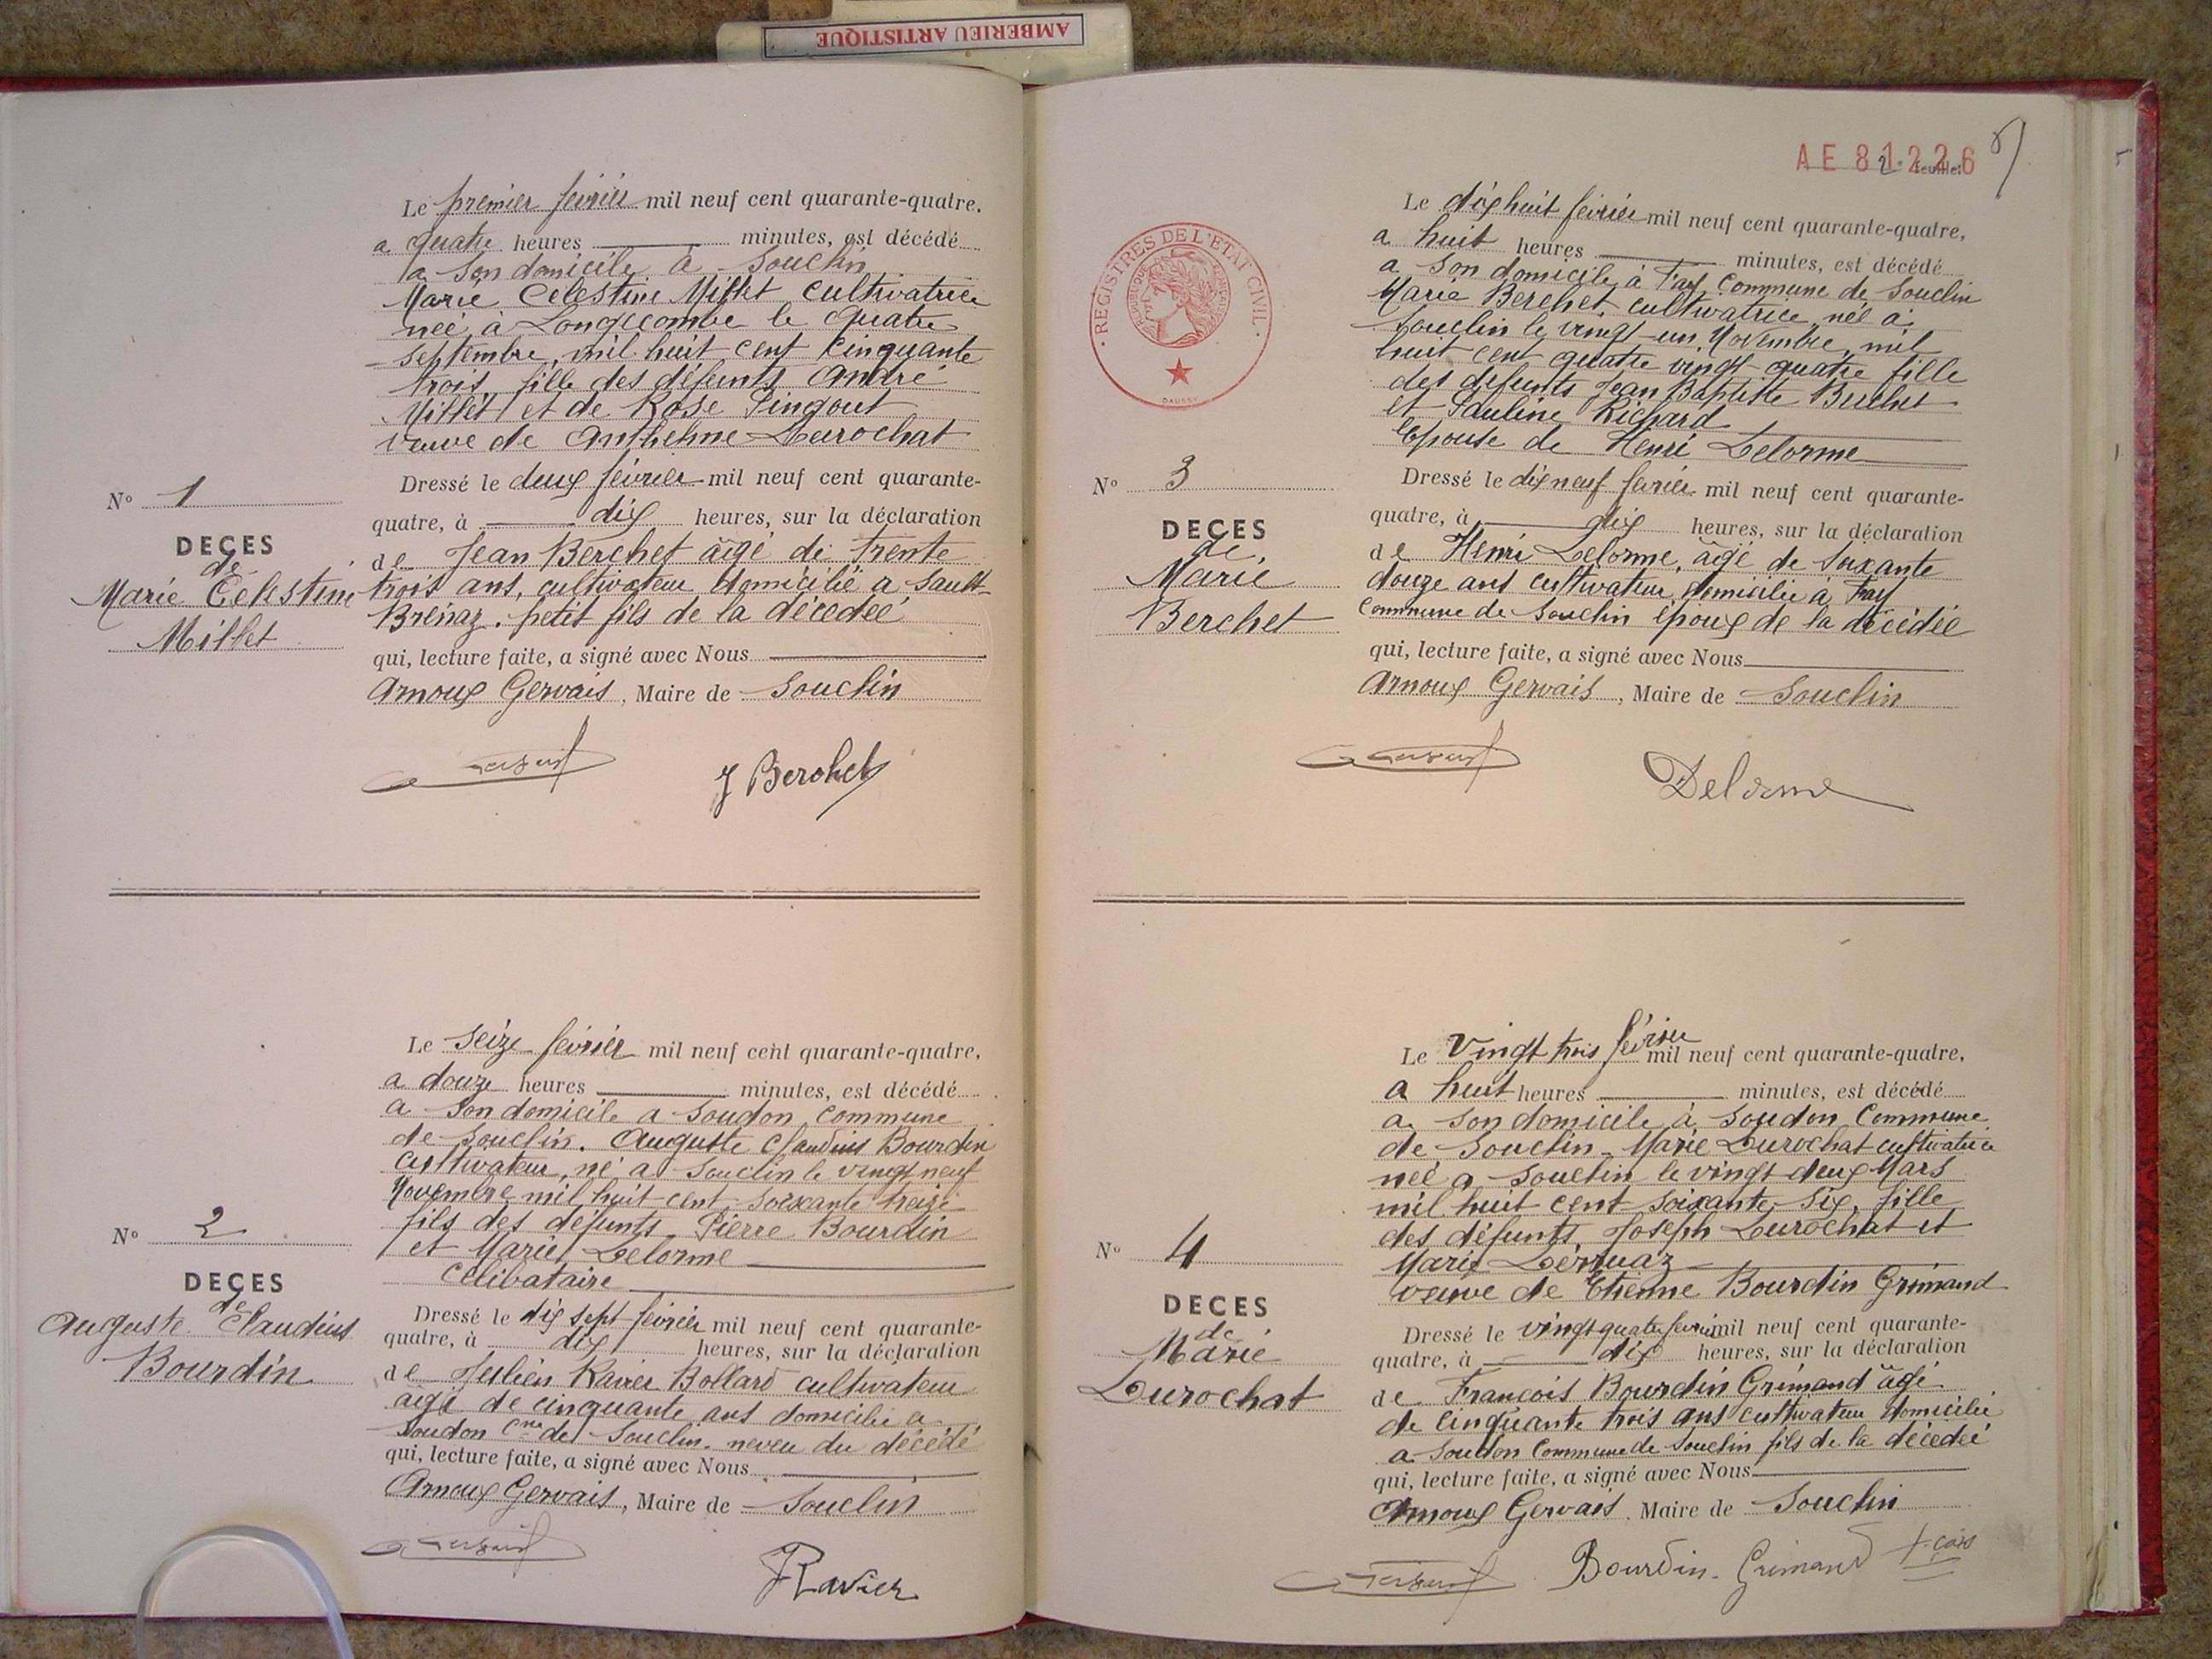 AMBERIEU ARTISTIQUE
Le premier février mil neuf cent quarante-quatre,
a quatre heures minutes, est décédé
a son domicile à Souclin
Marie Célestine Millet cultivatrice
neé à Longecombe le quatre
septembre mil huit cent cinquante
trois, fille des défunts André
Millet et de Rose Pingout
veuve de Anthelme Durochat
Dressé le deux février mil neuf cent quarante-
quatre, à dix heures, sur la déclaration
de Jean Berchet âigé de trente
trois ans, cultivateur domicilié a Sault
Brénaz. petit fils de la décédée
qui, lecture faite, a signé avec Nous
Arnoux Gervais, Maire de Souclin
N° 1
DECES
de
Marie Célestine
Millet
J Berchet
Le seize février mil neuf cent quarante-quatre,
a douze heures minutes, est décédé
a son domicile a Soudon commune
de Souclin. Auguste Claudius Bourdin
cultivateur, né a Souclin le vingt neuf
Novembre mil huit cent soixante treize
fils des défunts Pierre Bourdin
et Marie Delorme
célibataire
Dressé le dix sept février mil neuf cent quarante-
quatre, à dix heures, sur la déclaration
de Julien Ravier Bollard cultivateur
âigé de cinquante ans domicilié a
Soudon Cne de Souclin. neveu du décédé
qui, lecture faite, a signé avec Nous
Arnoux Gervais, Maire de Souclin
N° 2
DECES
de
Auguste Claudius
Bourdin
JRavier
AE 81226
2e feuillet
REGISTRES DE L'ETAT CIVIL
REPUBLIQUE FRANÇAISE
DAUSSY
Le dix huit février mil neuf cent quarante-quatre,
a huit heures minutes, est décédé
a son domicile à Fay Commune de Souclin
Marie Berchet, cultivatrice, néé à
Souclin le vingt-un Novembre, mil
huit cent quatre vingt-quatre fille
des défunts Jean Baptiste Berchet
et Pauline Richard
Epouse de Henri Delorme
Dressé le dix neuf février mil neuf cent quarante-
quatre, à dix heures, sur la déclaration
de Henri Delorme, âgé de soixante
douze ans cultivateur domicilié à Fay
Commune de Souclin époux de la décédée
qui, lecture faite, a signé avec Nous
Arnoux Gervais, Maire de Souclin
N° 3
DECES
de
Marie
Berchet
Delorme
Le Vingt trois février mil neuf cent quarante-quatre,
a huit heures minutes, est décédé
a son domicile à Soudon Commune
de Souclin Marie Durochat cultivatrice
neé a Souclin le vingt deux Mars
mil huit cent soixante six, fille
des défunts, Joseph Durochat et
Marie
veuve de Etienne Bourdin Grimand
Dressé le vingt quatre février mil neuf cent quarante-
quatre, à dix heures, sur la déclaration
de François Bourdin Grimand âgé
de cinquante trois ans cultivateur domicilié
a Soudon Commune de Souclin fils de la décédée
qui, lecture faite, a signé avec Nous
Arnoux Gervais, Maire de Souclin
N° 4
DECES
de
Marie
Durochat
Bourdin. Grimand fçois